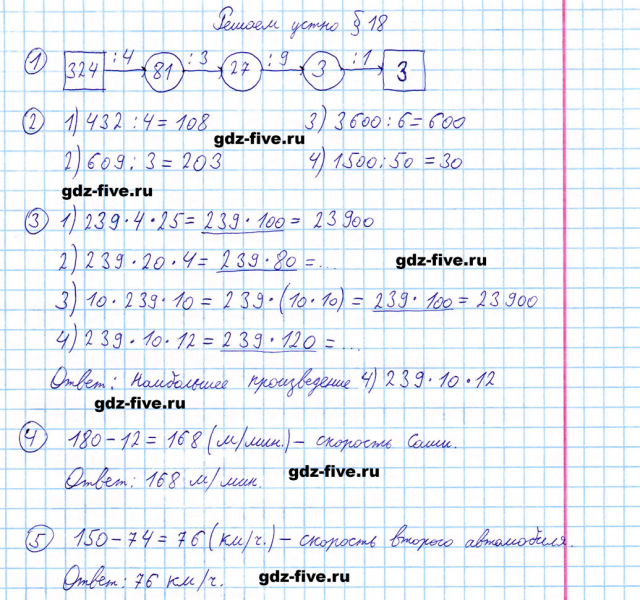 Решаем устно § 18
① 324 :4 81 :3 27 :9 3 :1 3
② 1) 432 : 4 = 108 3) 3600 : 6 = 600
gdz-five.ru
2) 609 : 3 = 203 4) 1500 : 50 = 30
gdz-five.ru
③ 1) 239 · 4 · 25 = 239 · 100 = 23900
2) 239 · 20 · 4 = 239 · 80 = ...
gdz-five.ru
3) 10 · 239 · 10 = 239 · (10 · 10) = 239 · 100 = 23900
4) 239 · 10 · 12 = 239 · 120 = ...
Ответ: наибольшее произведение 4) 239 · 10 · 12
gdz-five.ru
④ 180 - 12 = 168 (м/мин.) - скорость Саши.
gdz-five.ru
Ответ: 168 м/мин.
⑤ 150 - 74 = 76 (км/ч.) - скорость второго автомобиля.
Ответ: 76 км/ч.
gdz-five.ru